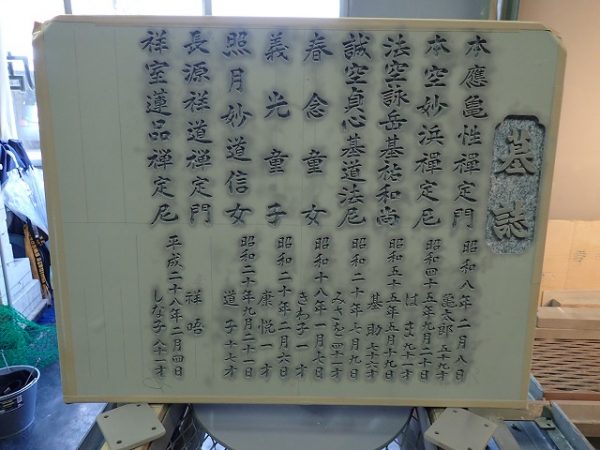 墓誌
本應亀性禪定門 昭和八年二月八日 亀太郎 五十九才
本空妙浜禪定尼 昭和四十五年九月二十日 はま 九十一才
法空詠岳基祐和尚 昭和五十五年五月十九日 基助 七十六才
誠空貞心基道法尼 昭和二十年七月九日 みさを 四十一才
春念童女 昭和十八年一月七日 きわ子 一才
義光童子 昭和二十年二月六日 康悦 一才
照月妙道信女 昭和二十年九月二十一日 道子 十七才
長源祥道禪定門 祥晤
祥室蓮品禪定尼 平成二十八年二月四日 しな子 八十一才